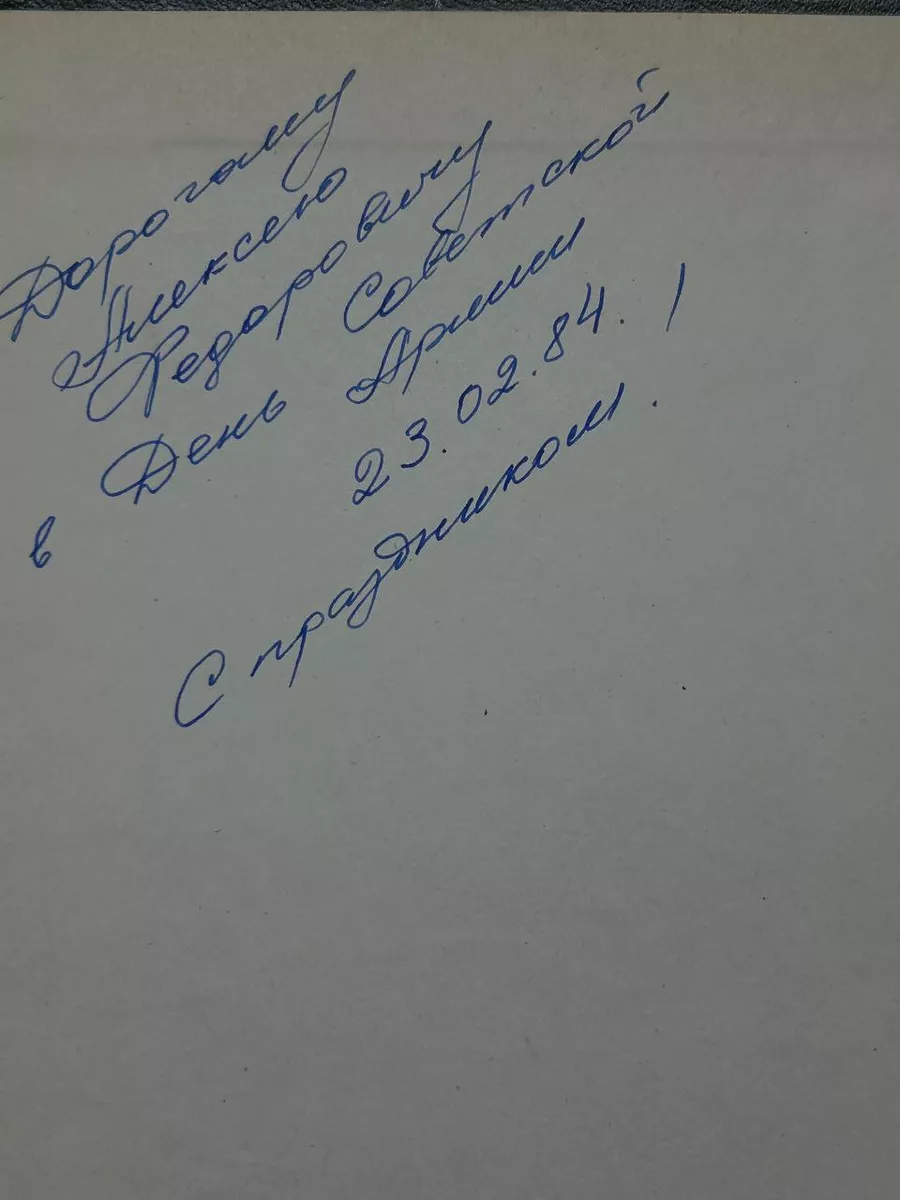 Дорогому
Алексею
Федоровичу
в День Советской
Армии
23.02.84.
С праздником!